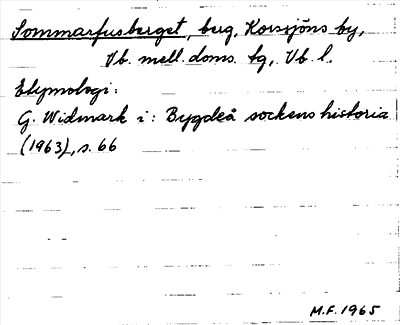 Sommarfusberget, berg, Korssjöns by,
Vb. mell. doms. tg, Vb. l.
Etymologi:
G. Widmark i: Bygdeå sockens historia
(1963), s. 66
M.F. 1965